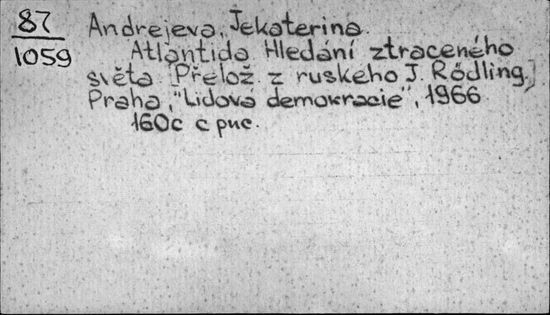 87
1059
Andrejeva, Jekaterina.
Atlantida. Hledání ztraceného
světa [Přelož. z ruskeho J. Rödling.]
Praha, "Lidová demokracie", 1966
160с с рис.